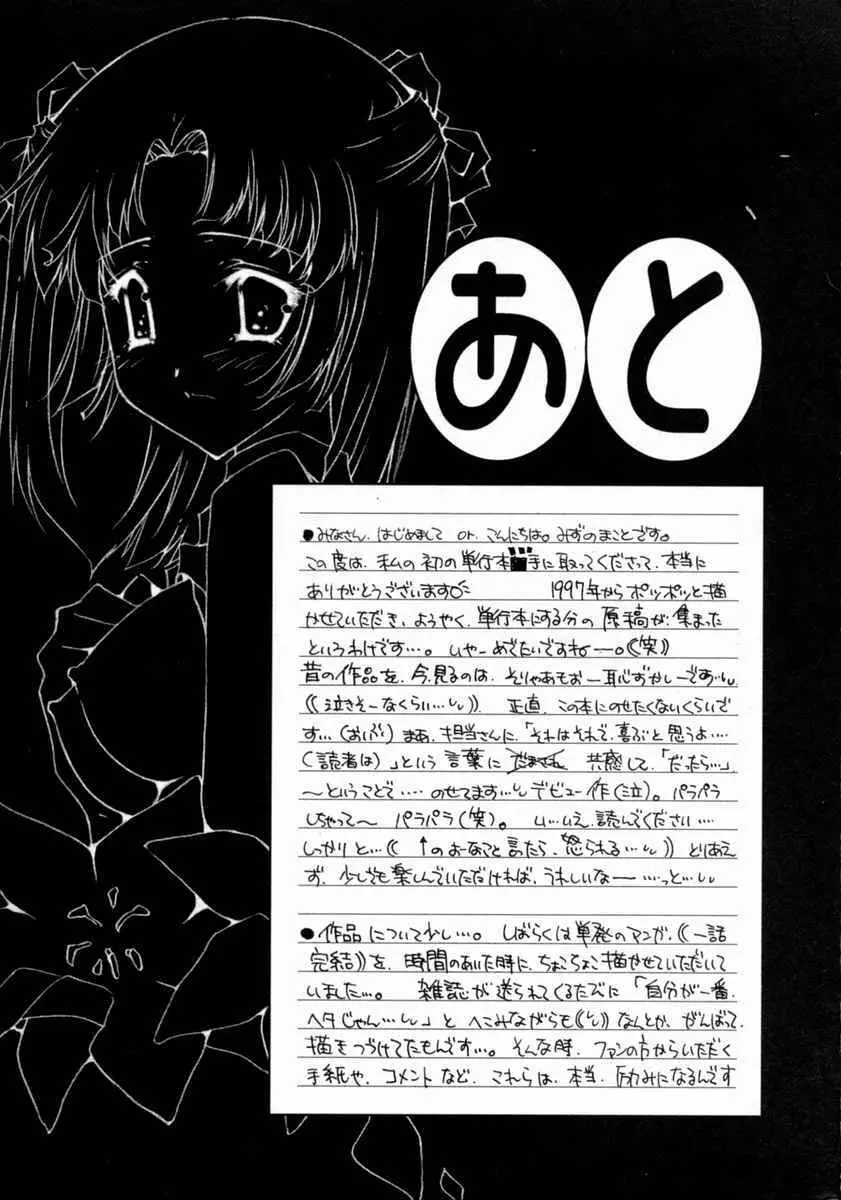 あと
●みなさん、はじめまして or. こんにちは。みずのまことです。
この度は、私の初の単行本手に取ってくださって、本当に
ありがとうございます 1997年からポツポツと描
かせていただき、ようやく、単行本にする分の原稿が集まった
というわけです…。いやーめでたいですねー。((笑))
昔の作品を、今、見るのは、そりゃあもおー恥ずかしーです…
((泣きそーなくらい…)). 正直、この本にのせたくないくらいで
す…(おいふ) まあ、担当さんに、「それはそれで、喜ぶと思うよ…
(読者は)」という言葉に 共感して、「だったら…」
〜ということで‥‥のせてます… デビュー作(泣)。パラパラ
しちゃって〜 パラパラ(笑)。い…いえ、読んでください…
しっかりと…(( ↑のよーなこと言ったら、怒られる…)) とりあえ
ず、少しでも楽しんでいただければ、うれしいなー……っと…
●作品について少し…。しばらくは単発のマンガ((一話
完結))を、時間のあいた時に、ちょこちょこ描かせていただいて
いました…。雑誌が送られてくるたびに「自分が一番、
ヘタじゃん…」と へこみながらも なんとか、がんばって、
描きつづけてたもんです…。そんな時、ファンの方からいただく
手紙や、コメントなど、これらは、本当、励みになるんです